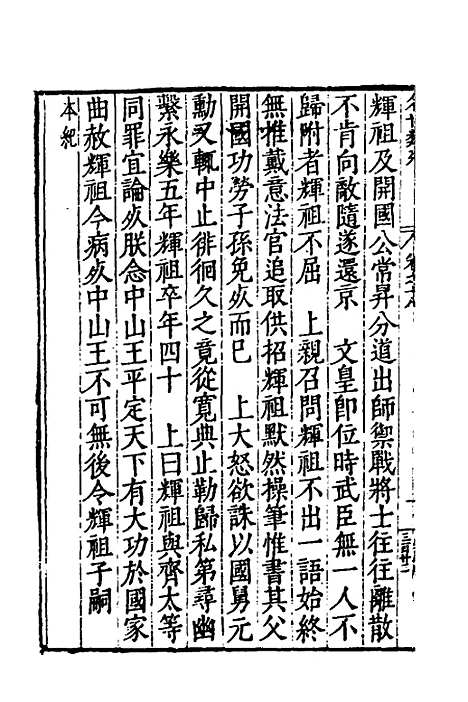 輝祖及開國公常昇分道出師禦戰將士往往離散
不肯向敵隨遂還京　文皇卽位時武臣無一人不
歸附者輝祖不屈　上親召問輝祖不出一語始終
無惟戴意法官追取供招輝祖默然操筆惟書其父
開國功勞子孫免死而已　上大怒欲誅以國舅元
勳又輒中止徘徊久之竟從寬典止勒歸私第尋幽
繫永樂五年輝祖卒年四十　上曰輝祖與齊太等
同罪宜論死朕念中山王平定天下有大功於國家
曲赦輝祖今病死中山王不可無後令輝祖子嗣
本紀